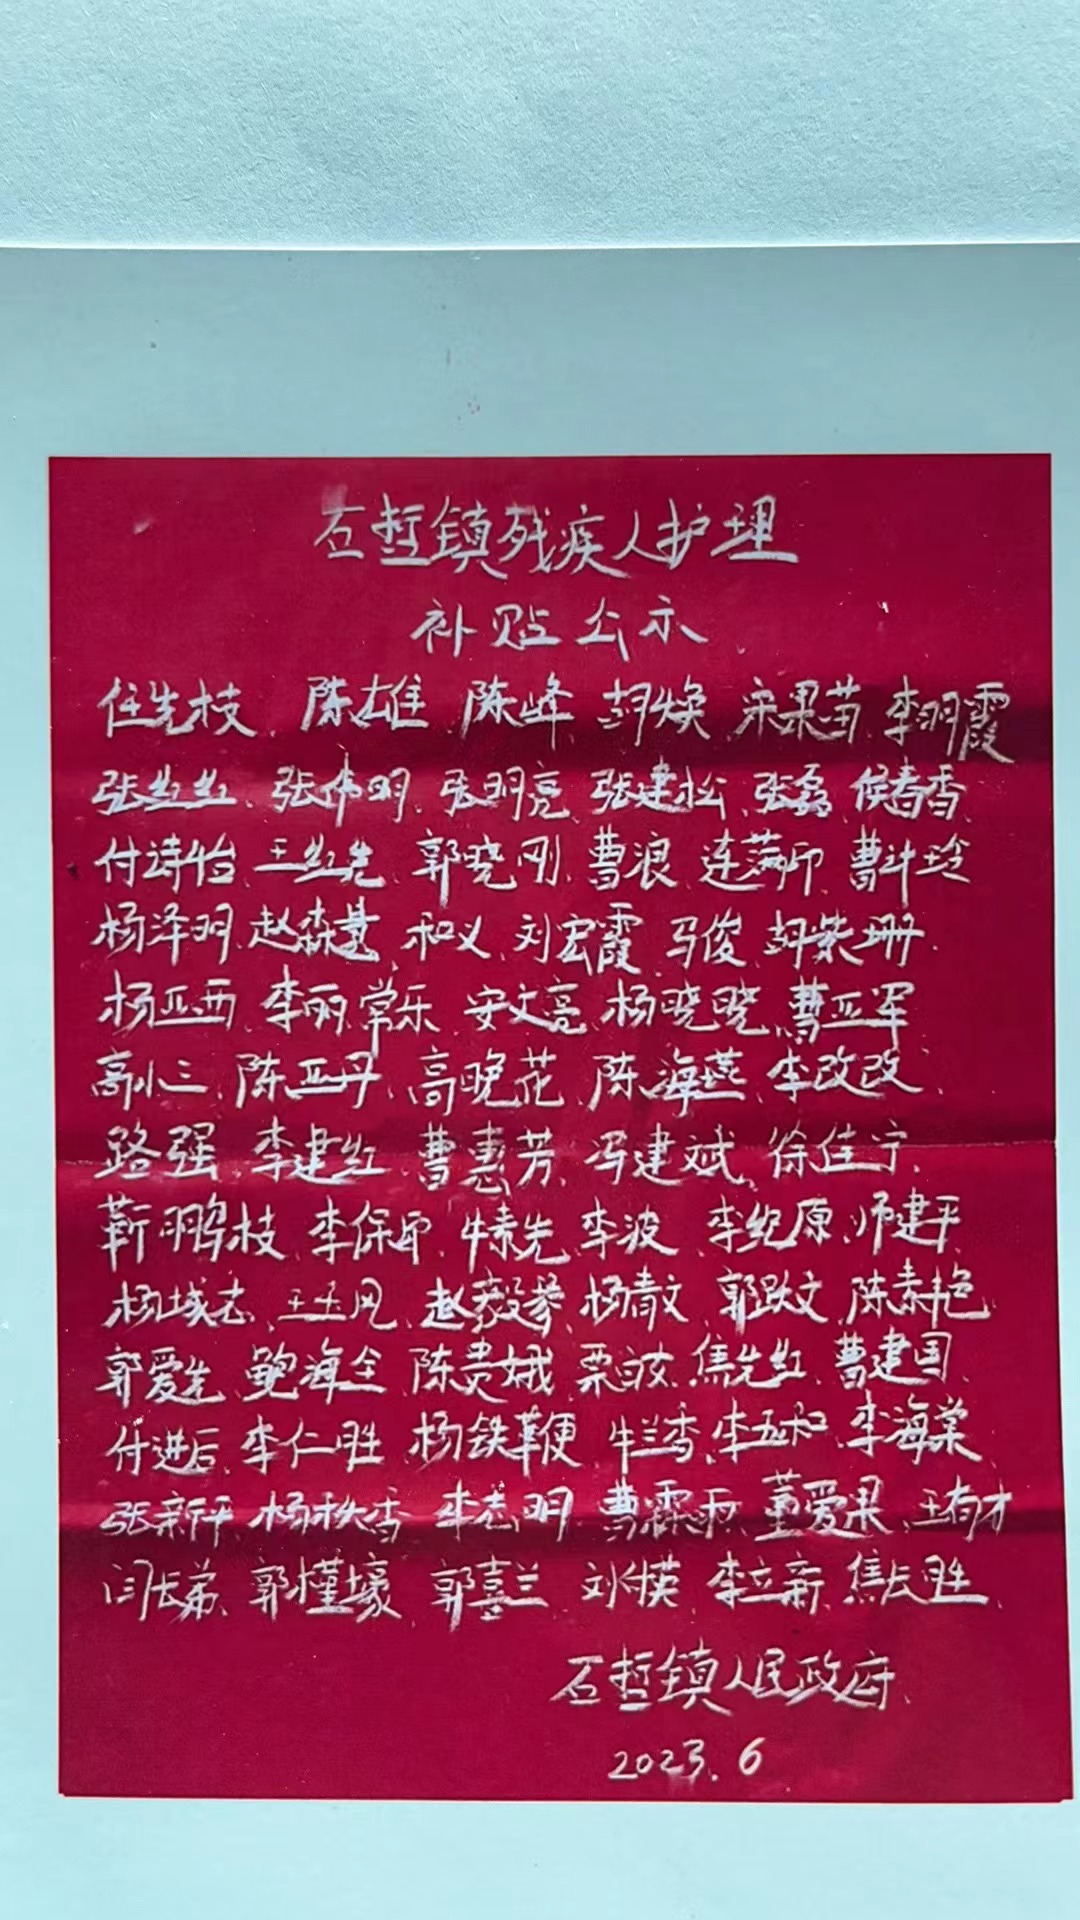 石哲镇残疾人护理
补贴公示
任先枝 陈雄 陈峰 胡焕 宋果苗 李明霞
张红红 张伟明 张明亮 张建松 张磊 侯春香
付诗怡 王红先 郭晓刚 曹浪 连满印 曹斗玲
杨泽明 赵森基 和义 刘宏霞 马俊 胡紫珊
杨亚西 李丽 常乐 安文亮 杨晓晓 曹亚军
高小三 陈亚丹 高晚花 陈海燕 李改改
路强 李建红 曹惠芳 冯建斌 徐佳宁
靳鹏枝 李保印 牛素先 李波 李纪原 师建平
杨城志 王玉凤 赵毅参 杨青文 郭跃文 陈素艳
郭爱先 鲍海全 陈贵娥 栗波 焦先红 曹建国
付进后 李仁胜 杨铁鞭 牛兰香 李五和 李海棠
张新平 杨秋香 李志明 曹霖雨 董爱果 王有才
闫长弟 郭懂壕 郭喜兰 刘模 李立新 焦长胜
石哲镇人民政府
2023.6